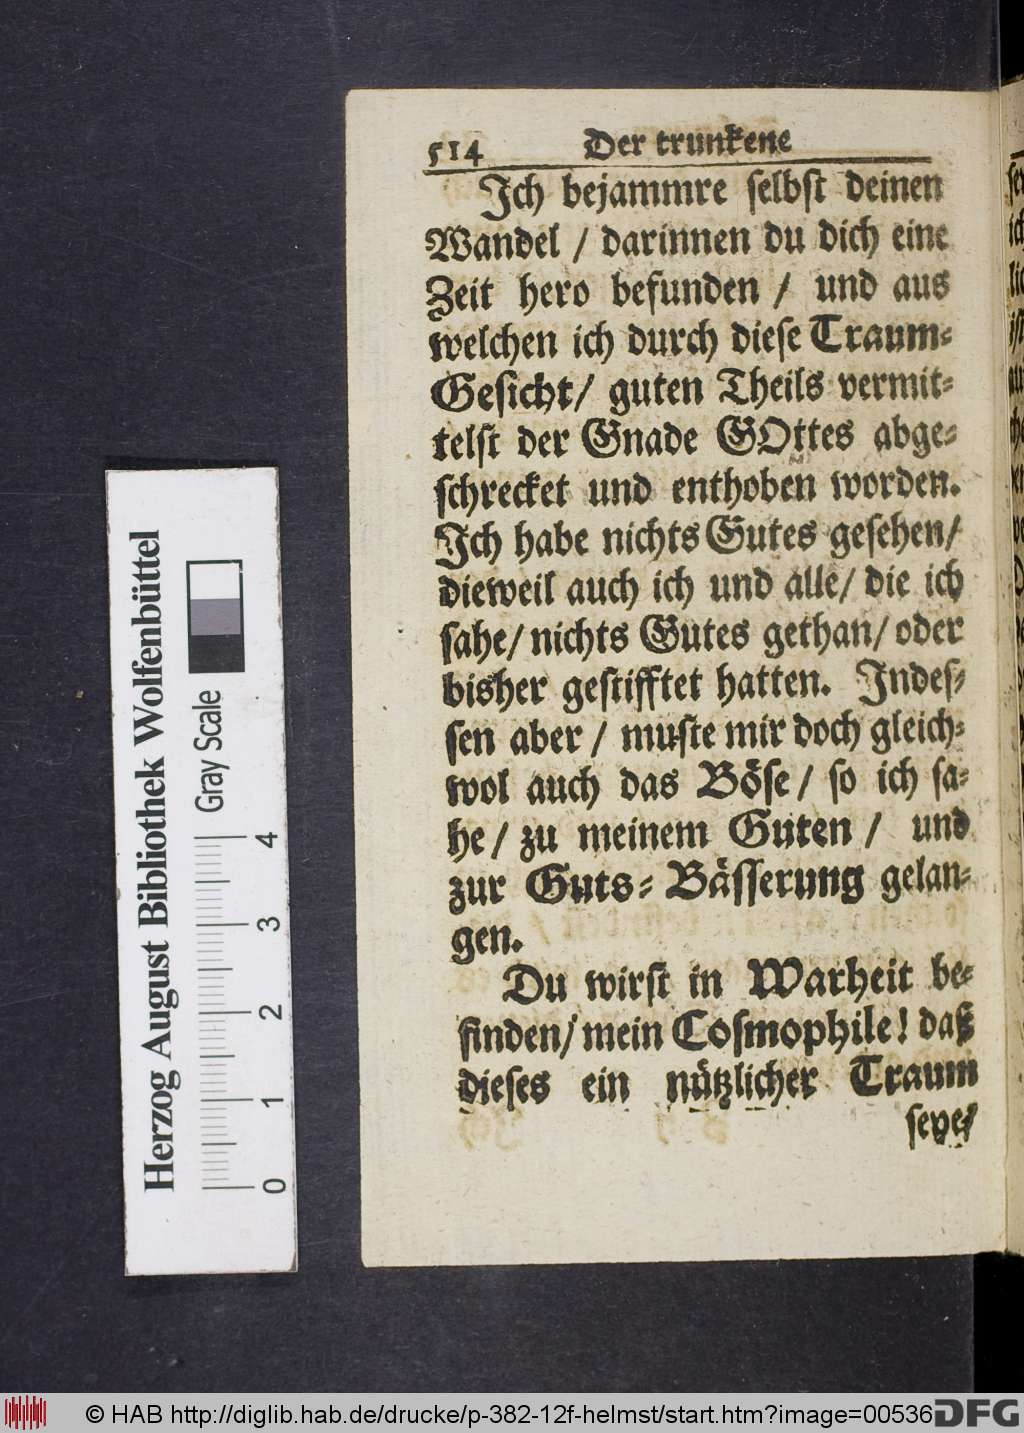 514 Der trunkene
Ich bejammre ſelbſt deinen
Wandel / darinnen du dich eine
Zeit hero befunden / und aus
welchen ich durch dieſe Traum⸗
Geſicht / guten Theils vermit⸗
telſt der Gnade GOttes abge⸗
ſchrecket und enthoben worden.
Ich habe nichts Gutes geſehen /
dieweil auch ich und alle / die ich
ſahe / nichts Gutes gethan / oder
bisher geſtifftet hatten. Indeſ⸗
ſen aber / muſte mir doch gleich⸗
wol auch das Böſe / ſo ich ſa⸗
he / zu meinem Guten / und
zur Guts⸗Bäſſerung gelan⸗
gen.
Du wirſt in Warheit be⸗
finden / mein Coſmophile! daß
dieſes ein nützlicher Traum
ſeye /
Herzog August Bibliothek Wolfenbüttel
Gray Scale
0 1 2 3 4
© HAB http://diglib.hab.de/drucke/p-382-12f-helmst/start.htm?image=00536
DFG